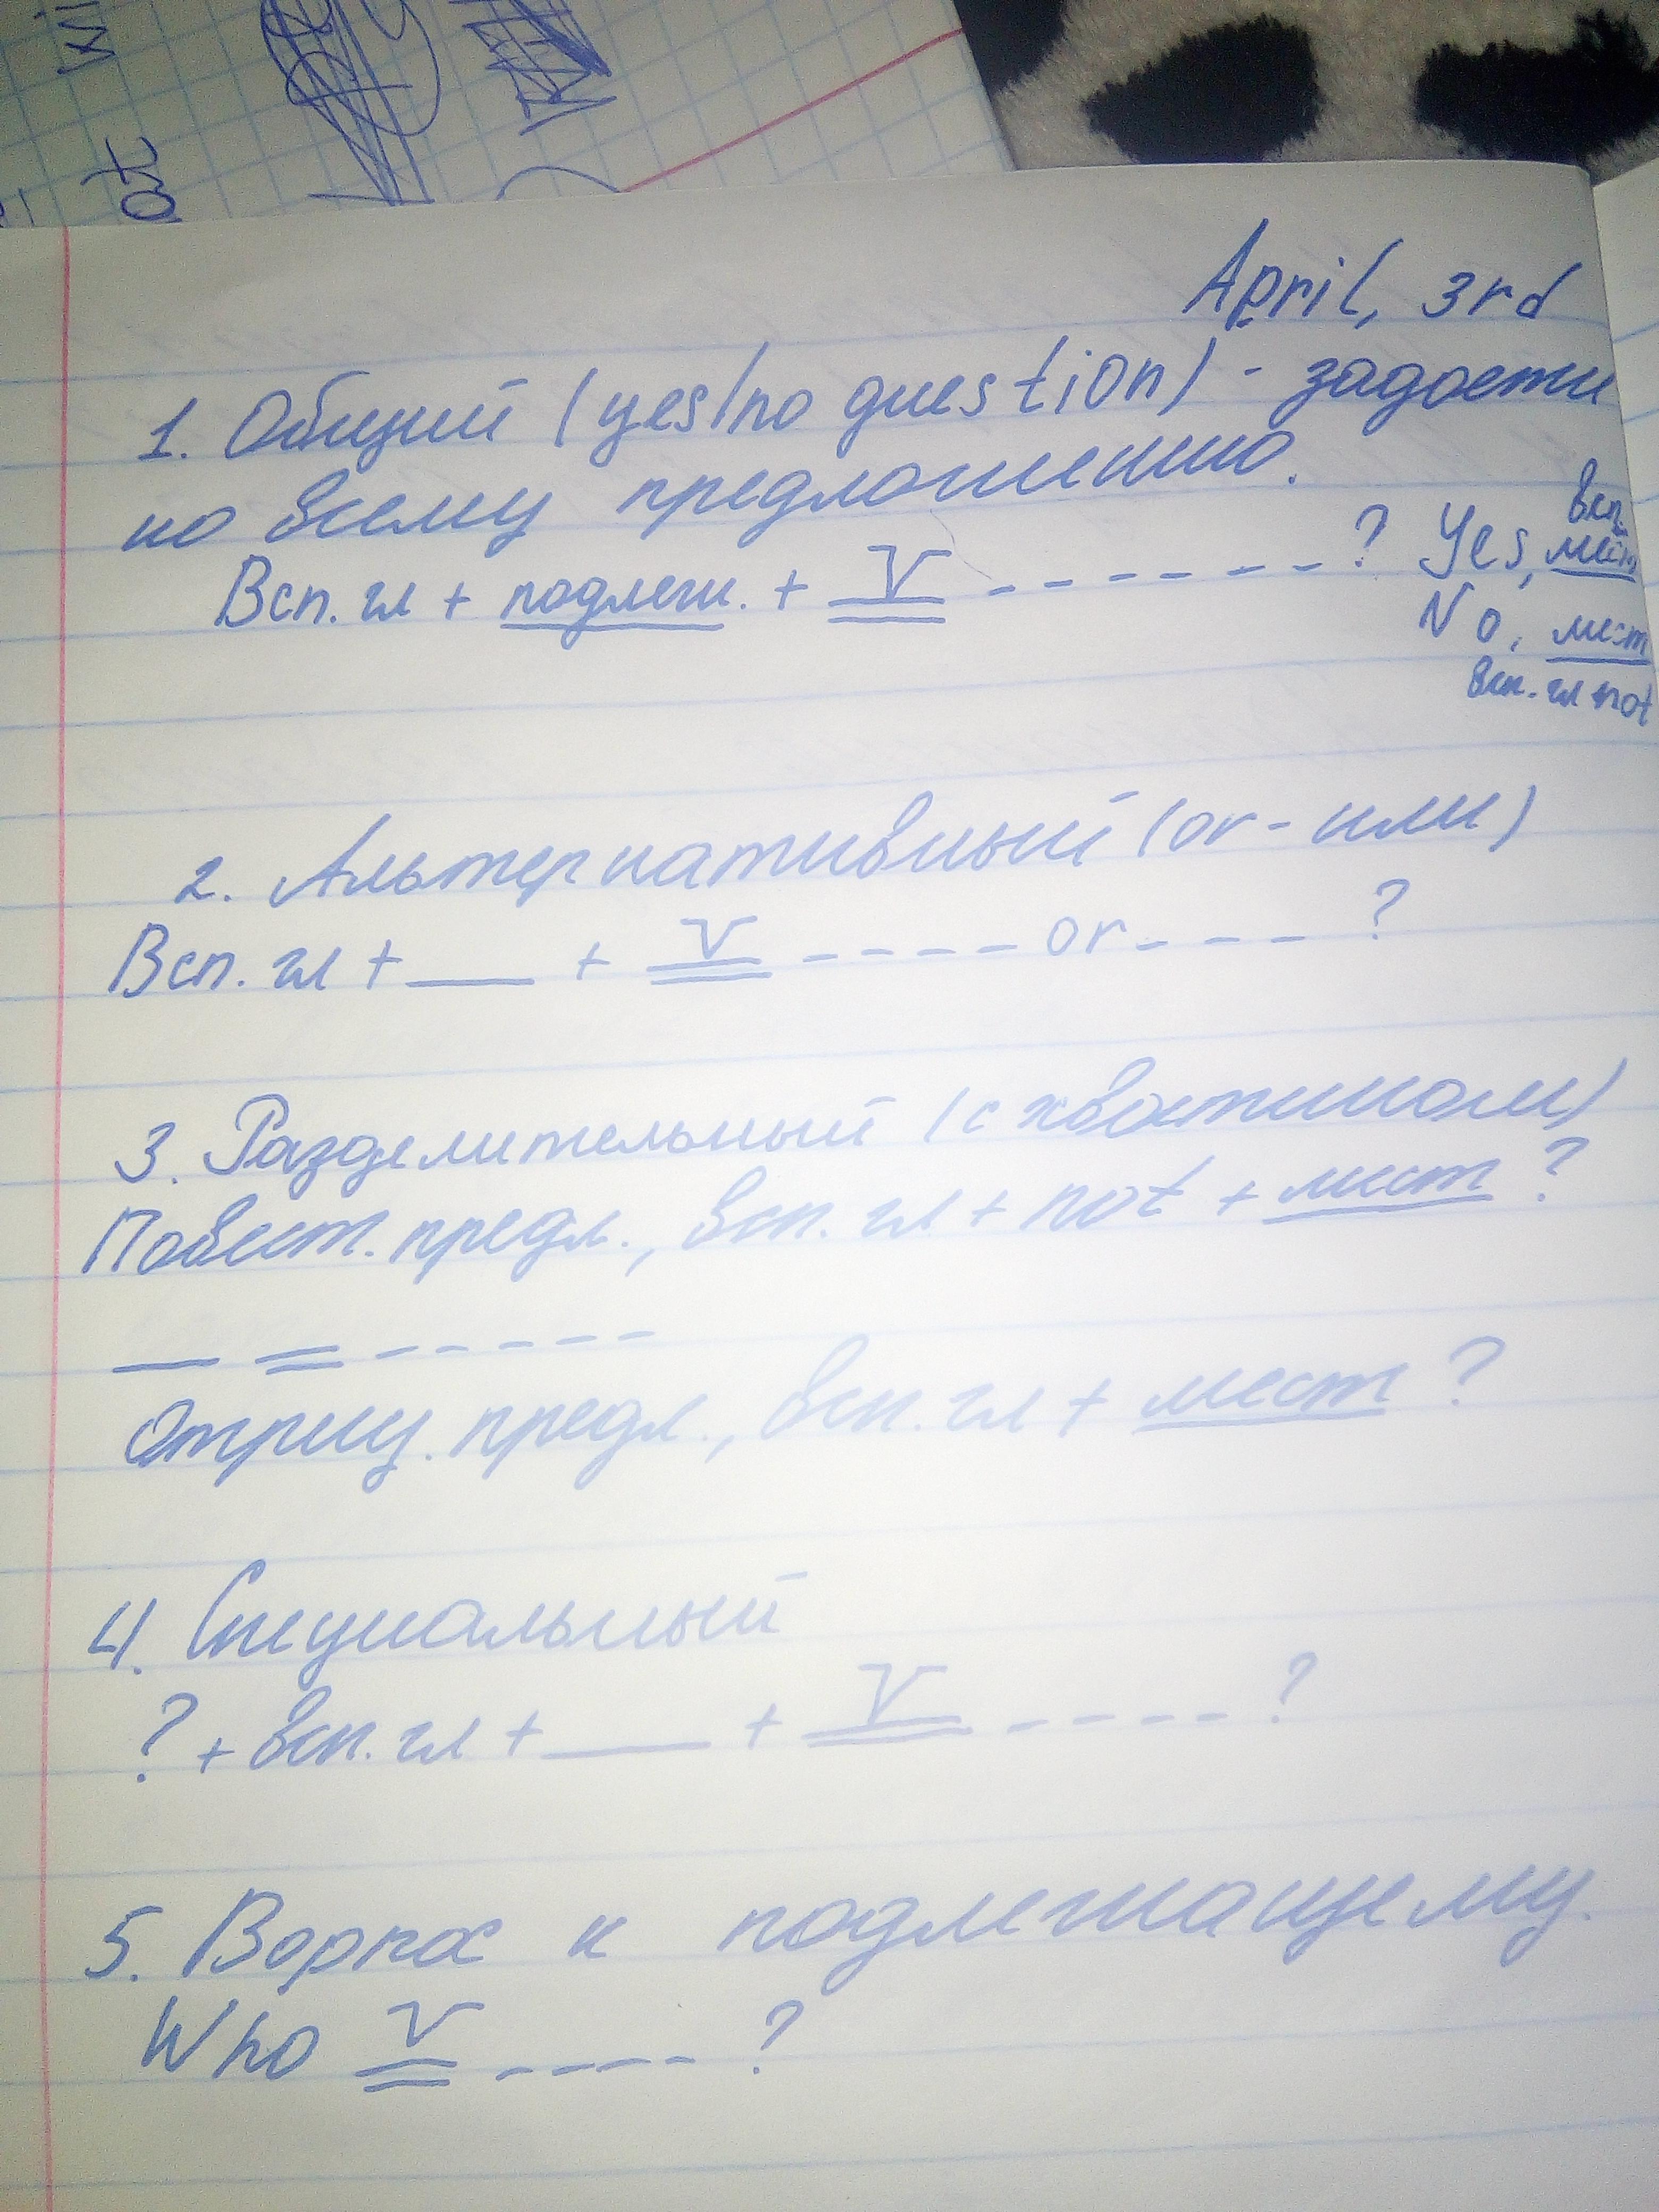 at
April, 3rd
1. Общий (yes/no question) - задается
по всему предложению.
Всп. гл + подлеж. + V - - - - - - - ? Yes, мест
всп.
No, мест
всп. гл + not
2. Альтернативный (or - или)
Всп. гл + ___ + V - - - - - or - - - - ?
3. Разделительный (с хвостиком)
Повест. предл., всп. гл + not + мест ?
___ = - - - - - -
Отриц. предл., всп. гл + мест ?
4. Специальный
? + всп. гл + ___ + V - - - - - ?
5. Ворпос к подлежащему.
Who V - - - - - ?